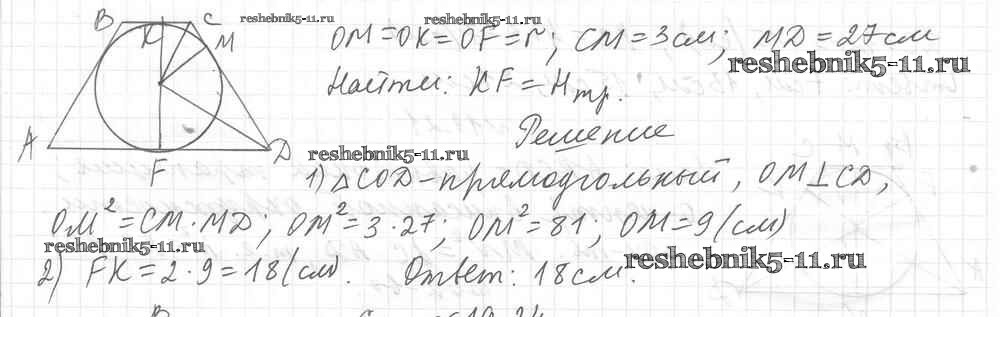 reshebnik5-11.ru reshebnik5-11.ru
B K C M
OM=OK=OF=r; CM=3см; MD=27см
reshebnik5-11.ru
Найти: KF=Hтр.
Решение
A F D
reshebnik5-11.ru
1) △COD-прямоугольный, OM⊥CD,
OM²=CM·MD; OM²=3·27; OM²=81; OM=9(см)
reshebnik5-11.ru
2) FK=2·9=18(см). Ответ: 18см.
reshebnik5-11.ru